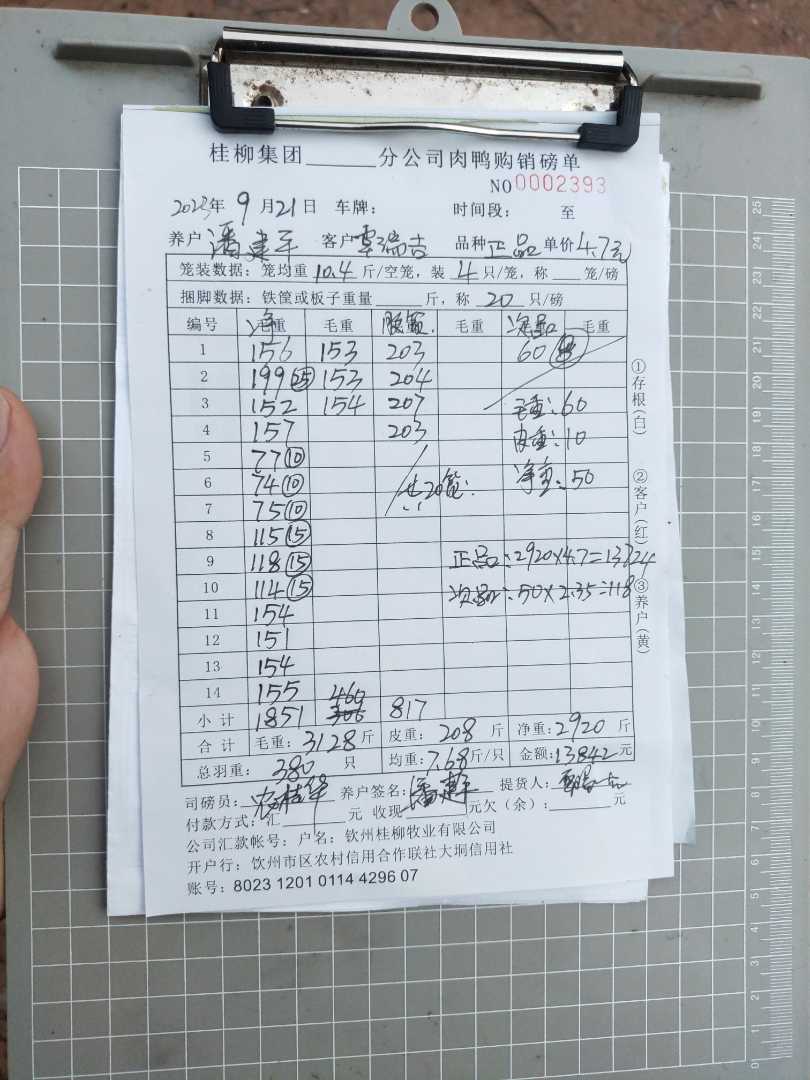 桂柳集团______分公司肉鸭购销磅单
NO 0002393
2023年 9月21日 车牌: 时间段: 至
养户 潘建军 客户 覃瑞吉 品种 正品 单价 4.7元
笼装数据: 笼均重 10.4 斤/空笼, 装 4 只/笼, 称____笼/磅
捆脚数据: 铁筐或板子重量______斤, 称 20 只/磅
编号 净毛重 毛重 胶筐 毛重 次品 毛重
1 156 153 203 60 ⑧
2 199 ㉕ 153 204
3 152 154 207 毛重: 60
4 157 203 皮重: 10
5 77 ⑩
6 74 ⑩ 共20筐 净重: 50
7 75 ⑩
8 115 ⑮
9 118 ⑮ 正品: 2920×4.7=13724
10 114 ⑮ 次品: 50×2.35=118
11 154
12 151
13 154
14 155 460
小计 1851 306 817
合计 毛重: 3128 斤 皮重: 208 斤 净重: 2920 斤
总羽重: 380 只 均重: 7.68 斤/只 金额: 13842 元
司磅员: 养户签名: 潘建军 提货人:
付款方式: 汇______元 收现______元欠(余): ______元
公司汇款帐号: 户名: 钦州桂柳牧业有限公司
开户行: 钦州市区农村信用合作联社大垌信用社
账号: 8023 1201 0114 4296 07
①存根(白) ②客户(红) ③养户(黄)
25
24
23
22
21
20
19
18
17
16
15
14
13
12
11
10
9
8
7
6
5
4
3
2
1
0